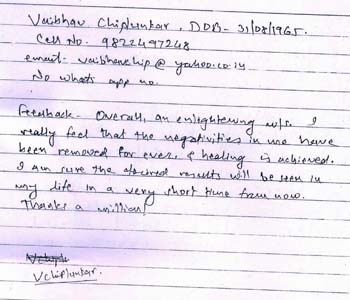 Vaibhav Chiplunkar, DOB - 31/08/1965.
Cell No. 9822497248
email - vaibhavchip@yahoo.co.in
No whats app no.
Feedback - Overall, an enlightening w/s. I
really feel that the negativities in me have
been removed for ever, & healing is achieved.
I am sure the desired results will be seen in
my life in a very short time from now.
Thanks a million!
VChiplunkar.